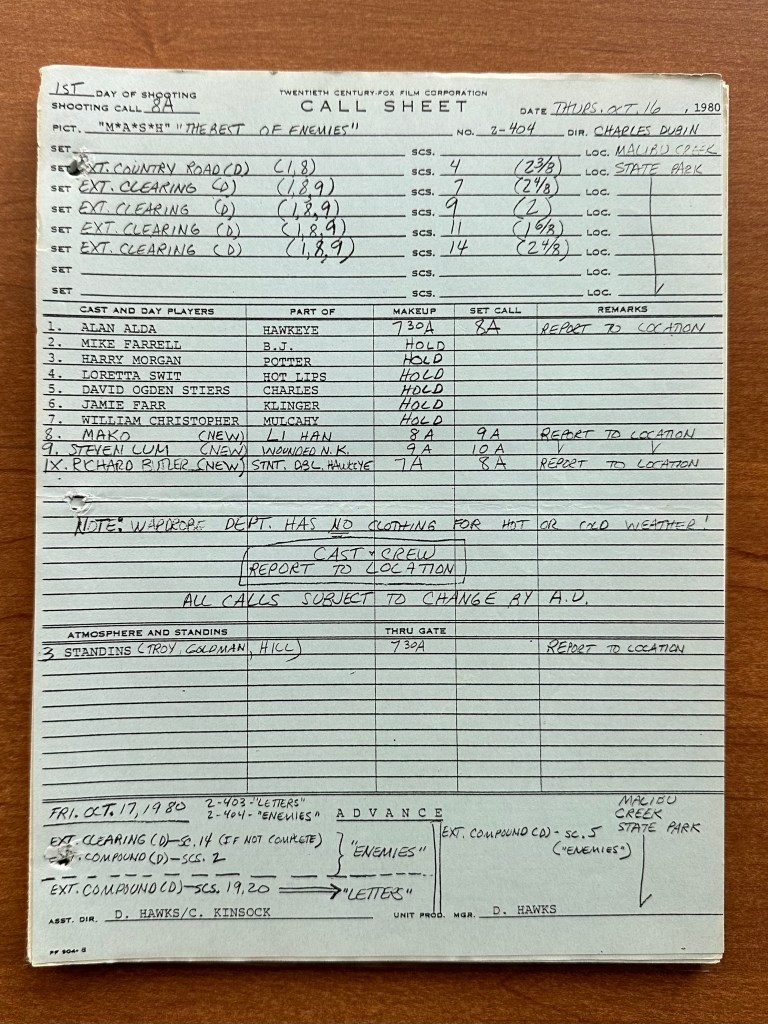 1ST DAY OF SHOOTING
TWENTIETH CENTURY-FOX FILM CORPORATION
SHOOTING CALL 8A CALL SHEET DATE THURS. OCT. 16, 1980
PICT. "M*A*S*H" "THE BEST OF ENEMIES" NO. 2-404 DIR. CHARLES DUBIN
SET SCS. LOC. MALIBU CREEK
SET EXT. COUNTRY ROAD (D) (1,8) SCS. 4 (2 3/8) LOC. STATE PARK
SET EXT. CLEARING (D) (1,8,9) SCS. 7 (2 4/8) LOC.
SET EXT. CLEARING (D) (1,8,9) SCS. 9 (2) LOC.
SET EXT. CLEARING (D) (1,8,9) SCS. 11 (1 6/8) LOC.
SET EXT. CLEARING (D) (1,8,9) SCS. 14 (2 4/8) LOC.
SET SCS. LOC.
SET SCS. LOC.
CAST AND DAY PLAYERS PART OF MAKEUP SET CALL REMARKS
1. ALAN ALDA HAWKEYE 730A 8A REPORT TO LOCATION
2. MIKE FARRELL B.J. HOLD
3. HARRY MORGAN POTTER HOLD
4. LORETTA SWIT HOT LIPS HOLD
5. DAVID OGDEN STIERS CHARLES HOLD
6. JAMIE FARR KLINGER HOLD
7. WILLIAM CHRISTOPHER MULCAHY HOLD
8. MAKO (NEW) LI HAN 8A 9A REPORT TO LOCATION
9. STEVEN LUM (NEW) WOUNDED N.K. 9A 10A
1X. RICHARD BUTLER (NEW) STNT. DBL. HAWKEYE 7A 8A REPORT TO LOCATION
NOTE: WARDROBE DEPT. HAS NO CLOTHING FOR HOT OR COLD WEATHER!
CAST & CREW
REPORT TO LOCATION
ALL CALLS SUBJECT TO CHANGE BY A.D.
ATMOSPHERE AND STANDINS THRU GATE
3 STANDINS (TROY, GOLDMAN, HILL) 730A REPORT TO LOCATION
FRI. OCT. 17, 1980 2-403-"LETTERS"
2-404-"ENEMIES" ADVANCE
MALIBU
CREEK
STATE PARK
EXT. CLEARING (D)-SC. 14 (IF NOT COMPLETE)
EXT. COMPOUND (D)-SCS. 2 "ENEMIES"
EXT. COMPOUND (D)-SC. 5
("ENEMIES")
EXT. COMPOUND (D)-SCS. 19, 20 "LETTERS"
ASST. DIR. D. HAWKS/C. KINSOCK UNIT PROD. MGR. D. HAWKS